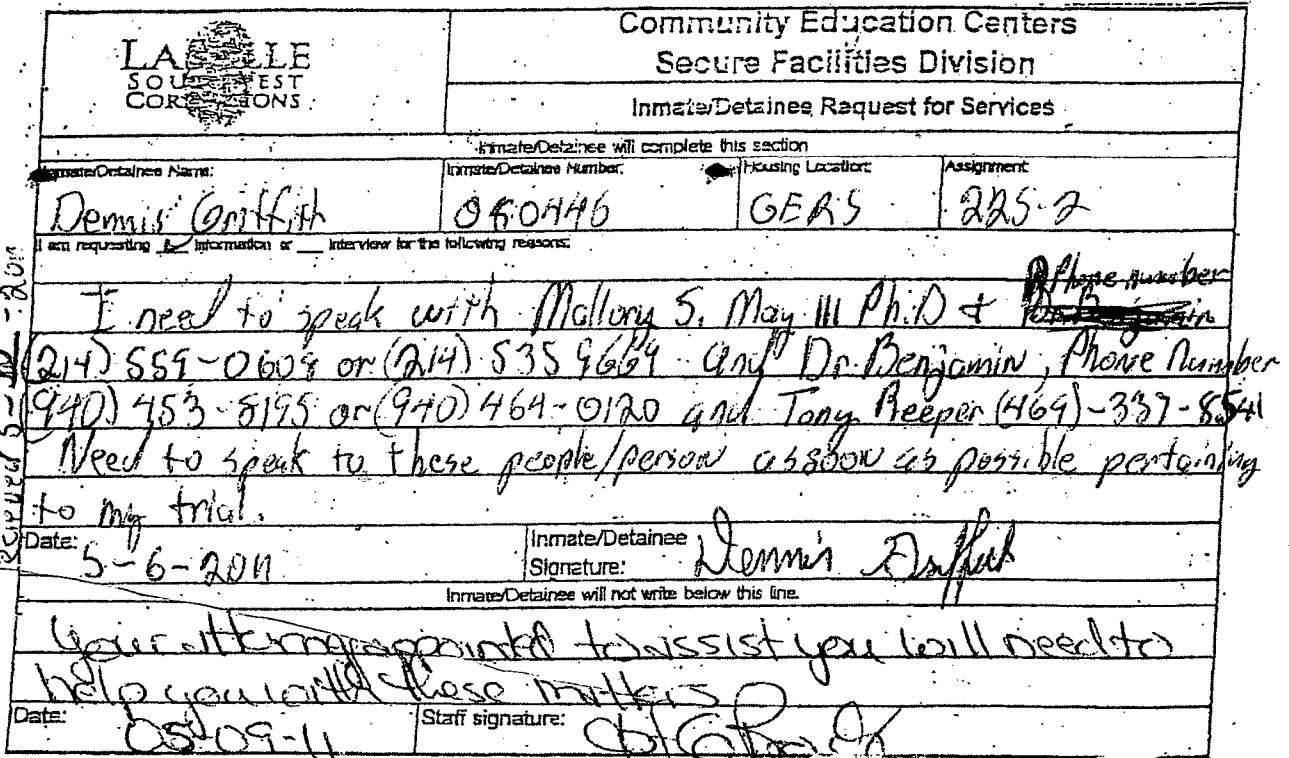 LASALLE
SOUTHWEST
CORRECTIONS
Community Education Centers
Secure Facilities Division
Inmate/Detainee Request for Services
Inmate/Detainee will complete this section
Inmate/Detainee Name: Inmate/Detainee Number: Housing Location: Assignment:
Dennis Griffith 080446 GERS 225-2
I am requesting information or ___ interview for the following reasons:
Phone number
I need to speak with Mallory S. May III Ph.D &
(214) 559-0609 or (214) 535 9669 and Dr. Benjamin, Phone Number
(940) 453-8195 or (940) 464-0120 and Tony Reeper (469)-337-8541
Need to speak to these people/person as soon as possible pertaining
to my trial.
Date: 5-6-2011 Inmate/Detainee Signature: Dennis Griffith
Inmate/Detainee will not write below this line.
your attorney appointed to assist you will need to
help you with these matters
Date: 05-09-11 Staff signature: